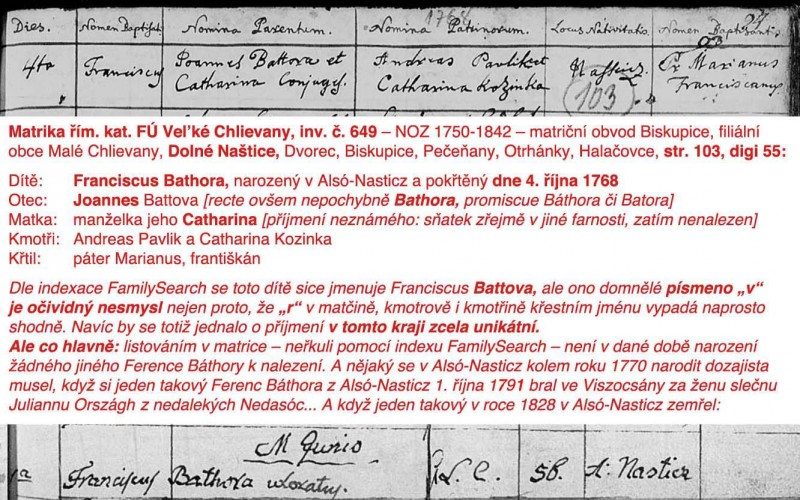 Dies. Nomen Baptisat. Nomina Parentum. Nomina Patrinorum. Locus Nativitatis. Nomen Baptisantis
4ta Franciscus Joannes Battora et Andreas Pavlik et Nasticz. Pr Marianus
Catharina Conjuges. Catharina Kozinka Franciscanus
103
Matrika řím. kat. FÚ Veľké Chlievany, inv. č. 649 – NOZ 1750-1842 – matriční obvod Biskupice, filiální
obce Malé Chlievany, Dolné Naštice, Dvorec, Biskupice, Pečeňany, Otrhánky, Halačovce, str. 103, digi 55:
Dítě: Franciscus Bathora, narozený v Alsó-Nasticz a pokřtěný dne 4. října 1768
Otec: Joannes Battova [recte ovšem nepochybně Bathora, promiscue Báthora či Batora]
Matka: manželka jeho Catharina [příjmení neznámého: sňatek zřejmě v jiné farnosti, zatím nenalezen]
Kmotři: Andreas Pavlik a Catharina Kozinka
Křtil: páter Marianus, františkán
Dle indexace FamilySearch se toto dítě sice jmenuje Franciscus Battova, ale ono domnělé písmeno „v“
je očividný nesmysl nejen proto, že „r“ v matčině, kmotrově i kmotřině křestním jménu vypadá naprosto
shodně. Navíc by se totiž jednalo o příjmení v tomto kraji zcela unikátní.
Ale co hlavně: listováním v matrice – neřkuli pomocí indexu FamilySearch – není v dané době narození
žádného jiného Ference Báthory k nalezení. A nějaký se v Alsó-Nasticz kolem roku 1770 narodit dozajista
musel, když si jeden takový Ferenc Báthora z Alsó-Nasticz 1. října 1791 bral ve Viszocsány za ženu slečnu
Juliannu Országh z nedalekých Nedasóc... A když jeden takový v roce 1828 v Alsó-Nasticz zemřel:
M Junio
Franciscus Bathora uxoratus. R. C. 56. A: Nasticz